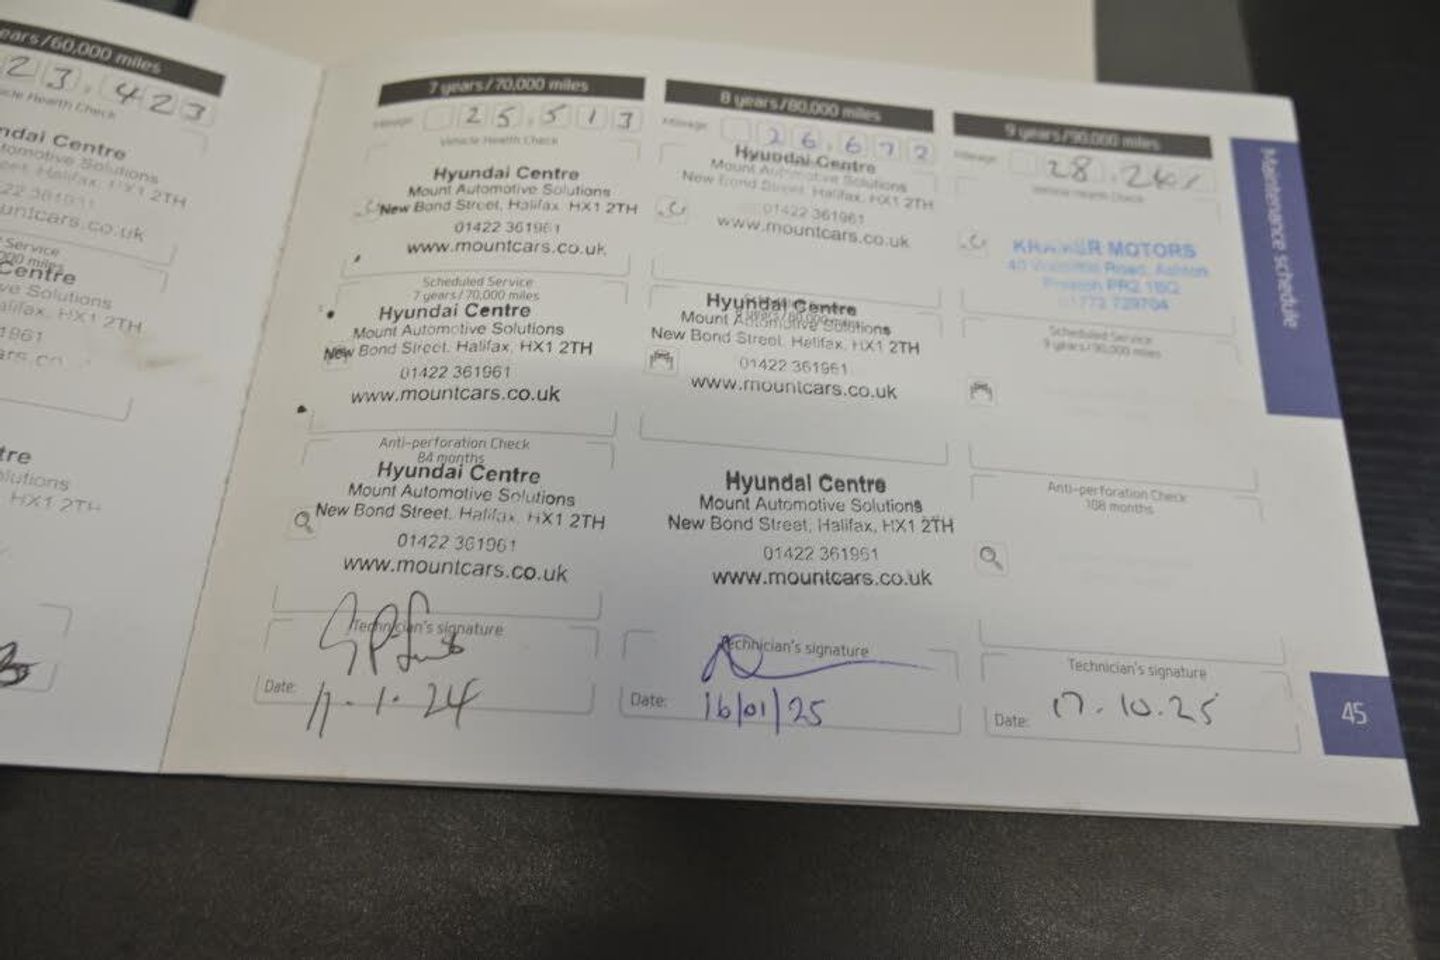 ears/60,000 miles
23,423
cle Health Check
ndai Centre
tomotive Solutions
eet, Halifax, HX1 2TH
22 361961
untcars.co.uk
Service
000 miles
Centre
ve Solutions
alifax, HX1 2TH
1961
ars.co
tre
olutions
HX1 2TH
7 years/70,000 miles
Mileage
25.513
Vehicle Health Check
Hyundai Centre
Mount Automotive Solutions
New Bond Street, Halifax, HX1 2TH
01422 361961
www.mountcars.co.uk
Scheduled Service
7 years/70,000 miles
Hyundai Centre
Mount Automotive Solutions
New Bond Street, Halifax, HX1 2TH
01422 361961
www.mountcars.co.uk
Anti-perforation Check
84 months
Hyundai Centre
Mount Automotive Solutions
New Bond Street, Halifax, HX1 2TH
01422 361961
www.mountcars.co.uk
Technician's signature
Date:
11.1.24
8 years/80,000 miles
Mileage
26.672
Hyundai Centre
Mount Automotive Solutions
New Bond Street, Halifax, HX1 2TH
01422 361961
www.mountcars.co.uk
Hyundai Centre
Mount Automotive Solutions
New Bond Street, Halifax, HX1 2TH
01422 361961
www.mountcars.co.uk
Hyundai Centre
Mount Automotive Solutions
New Bond Street, Halifax, HX1 2TH
01422 361961
www.mountcars.co.uk
Technician's signature
Date:
16/01/25
9 years/90,000 miles
Mileage
28.241
Vehicle Health Check
MOTORS
Road, Ashton
Preston PR2 1
01772 729704
Scheduled Service
9 years/90,000 miles
Anti-perforation Check
108 months
Technician's signature
Date:
17.10.25
Maintenance schedule
45